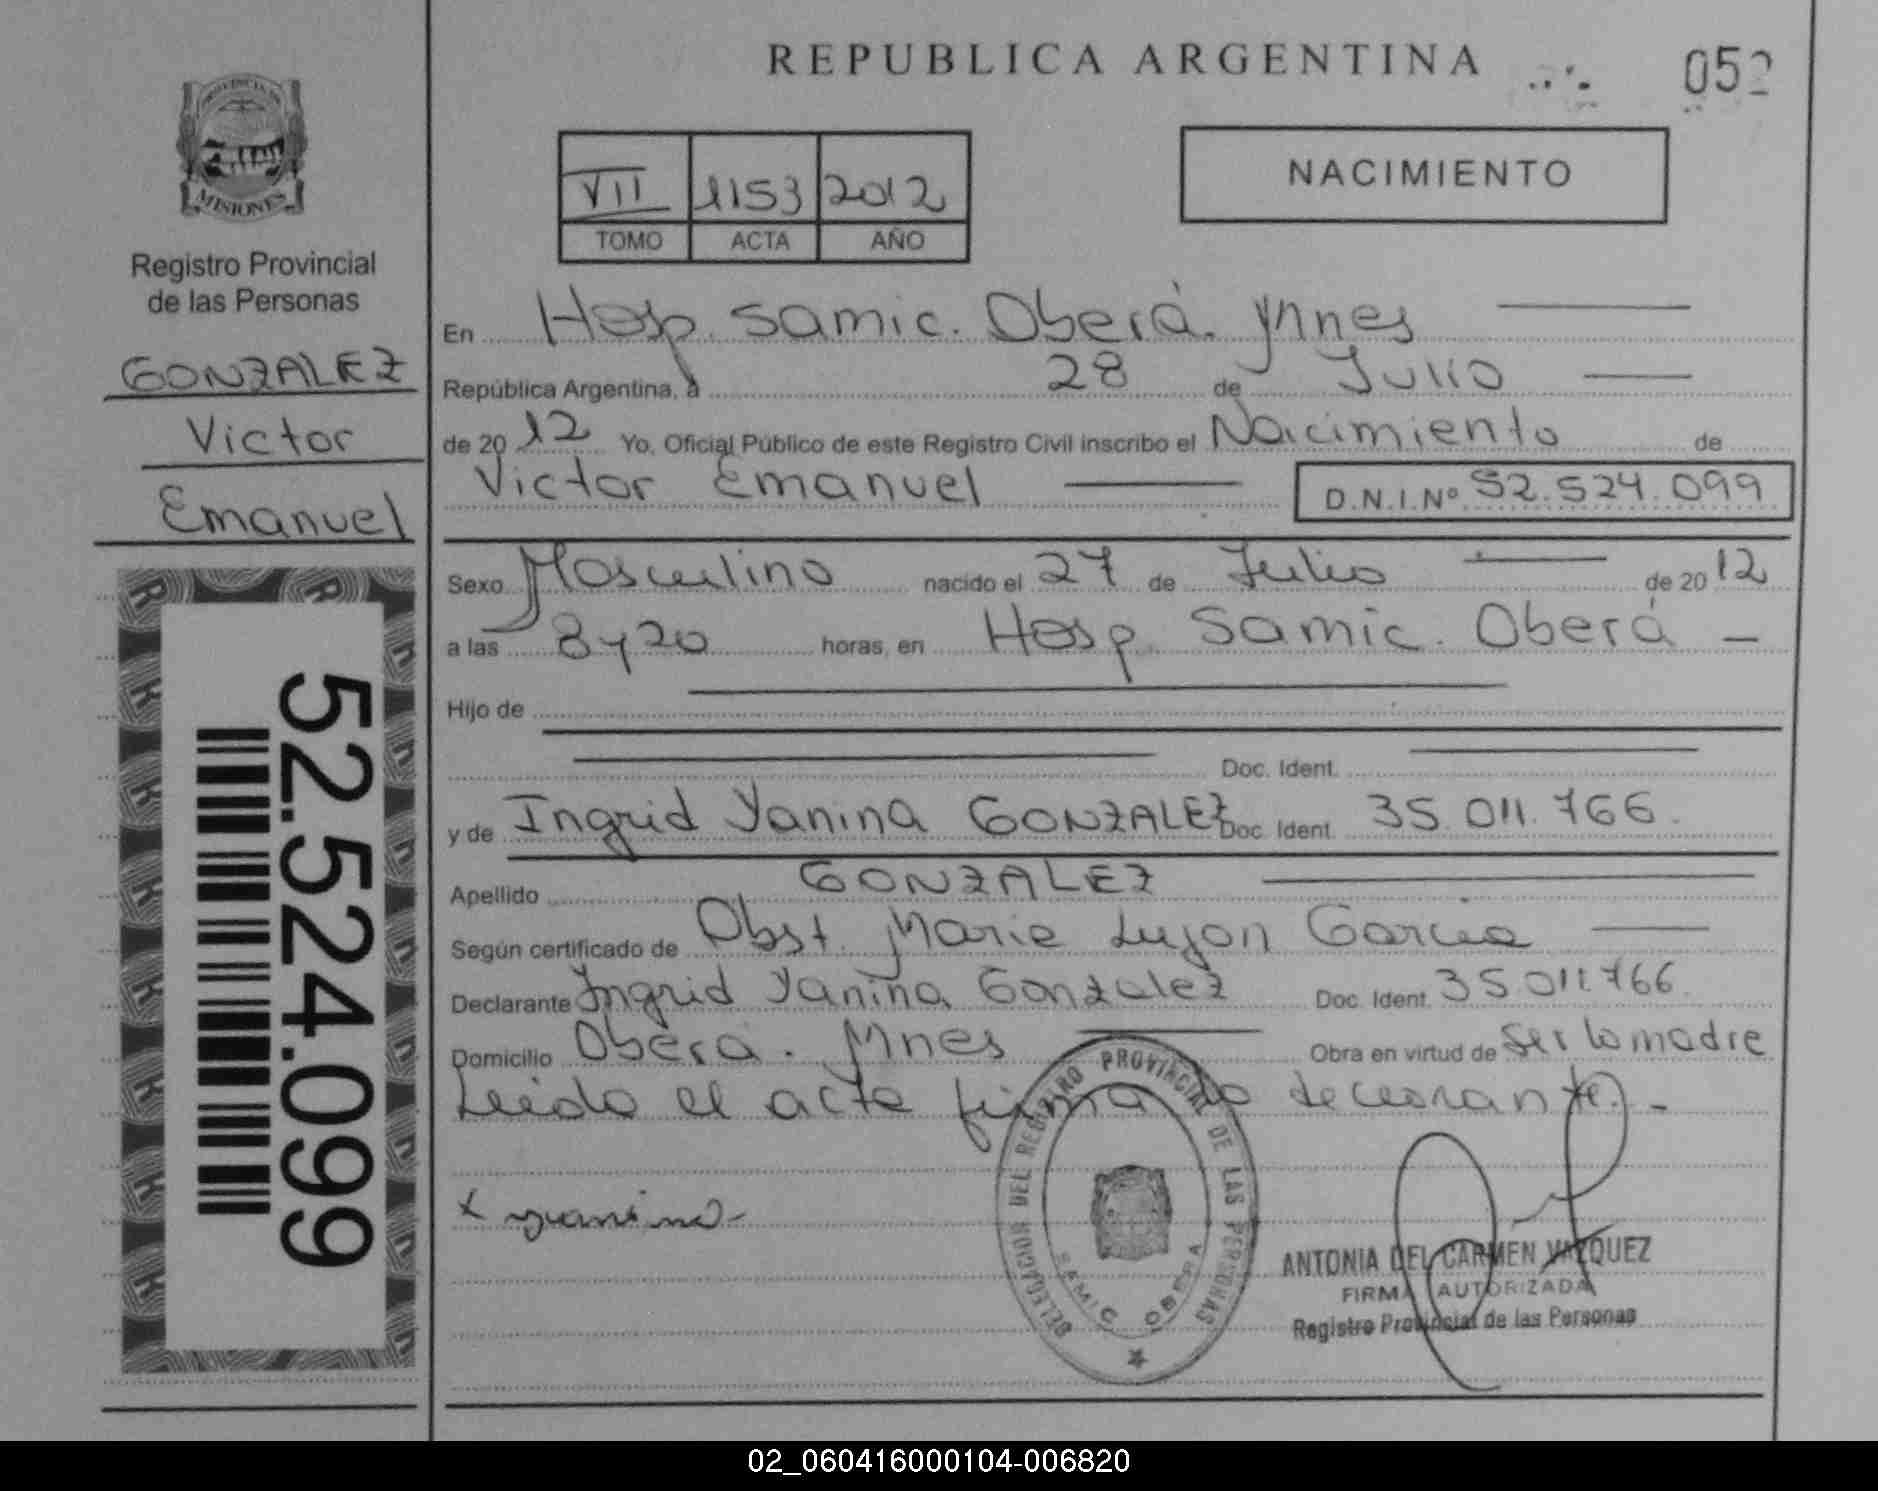 REPUBLICA ARGENTINA
052
MISIONES
Registro Provincial
de las Personas
GONZALEZ
Victor
Emanuel
52.524.099
VII 1153 2012
TOMO ACTA AÑO
NACIMIENTO
En Hosp. Samic. Oberá. Mnes
República Argentina, a 28 de Julio
de 2012 Yo, Oficial Público de este Registro Civil inscribo el Nacimiento de
Victor Emanuel D.N.I.Nº 52.524.099
Sexo Masculino nacido el 27 de Julio de 2012
a las 8 y 20 horas, en Hosp. Samic. Oberá
Hijo de
Doc. Ident.
y de Ingrid Yanina GONZALEZ Doc. Ident. 35.011.766.
Apellido GONZALEZ
Según certificado de Obst. Maria Lujan Garcia
Declarante Ingrid Yanina Gonzalez Doc. Ident. 35.011.766.
Domicilio Oberá. Mnes Obra en virtud de ser la madre
Leida el acta firma la declarante.-
x
DELEGACION DEL REGISTRO PROVINCIAL DE LAS PERSONAS
SAMIC OBERA
ANTONIA DEL CARMEN VAZQUEZ
FIRMA AUTORIZADA
Registro Provincial de las Personas
02_060416000104-006820